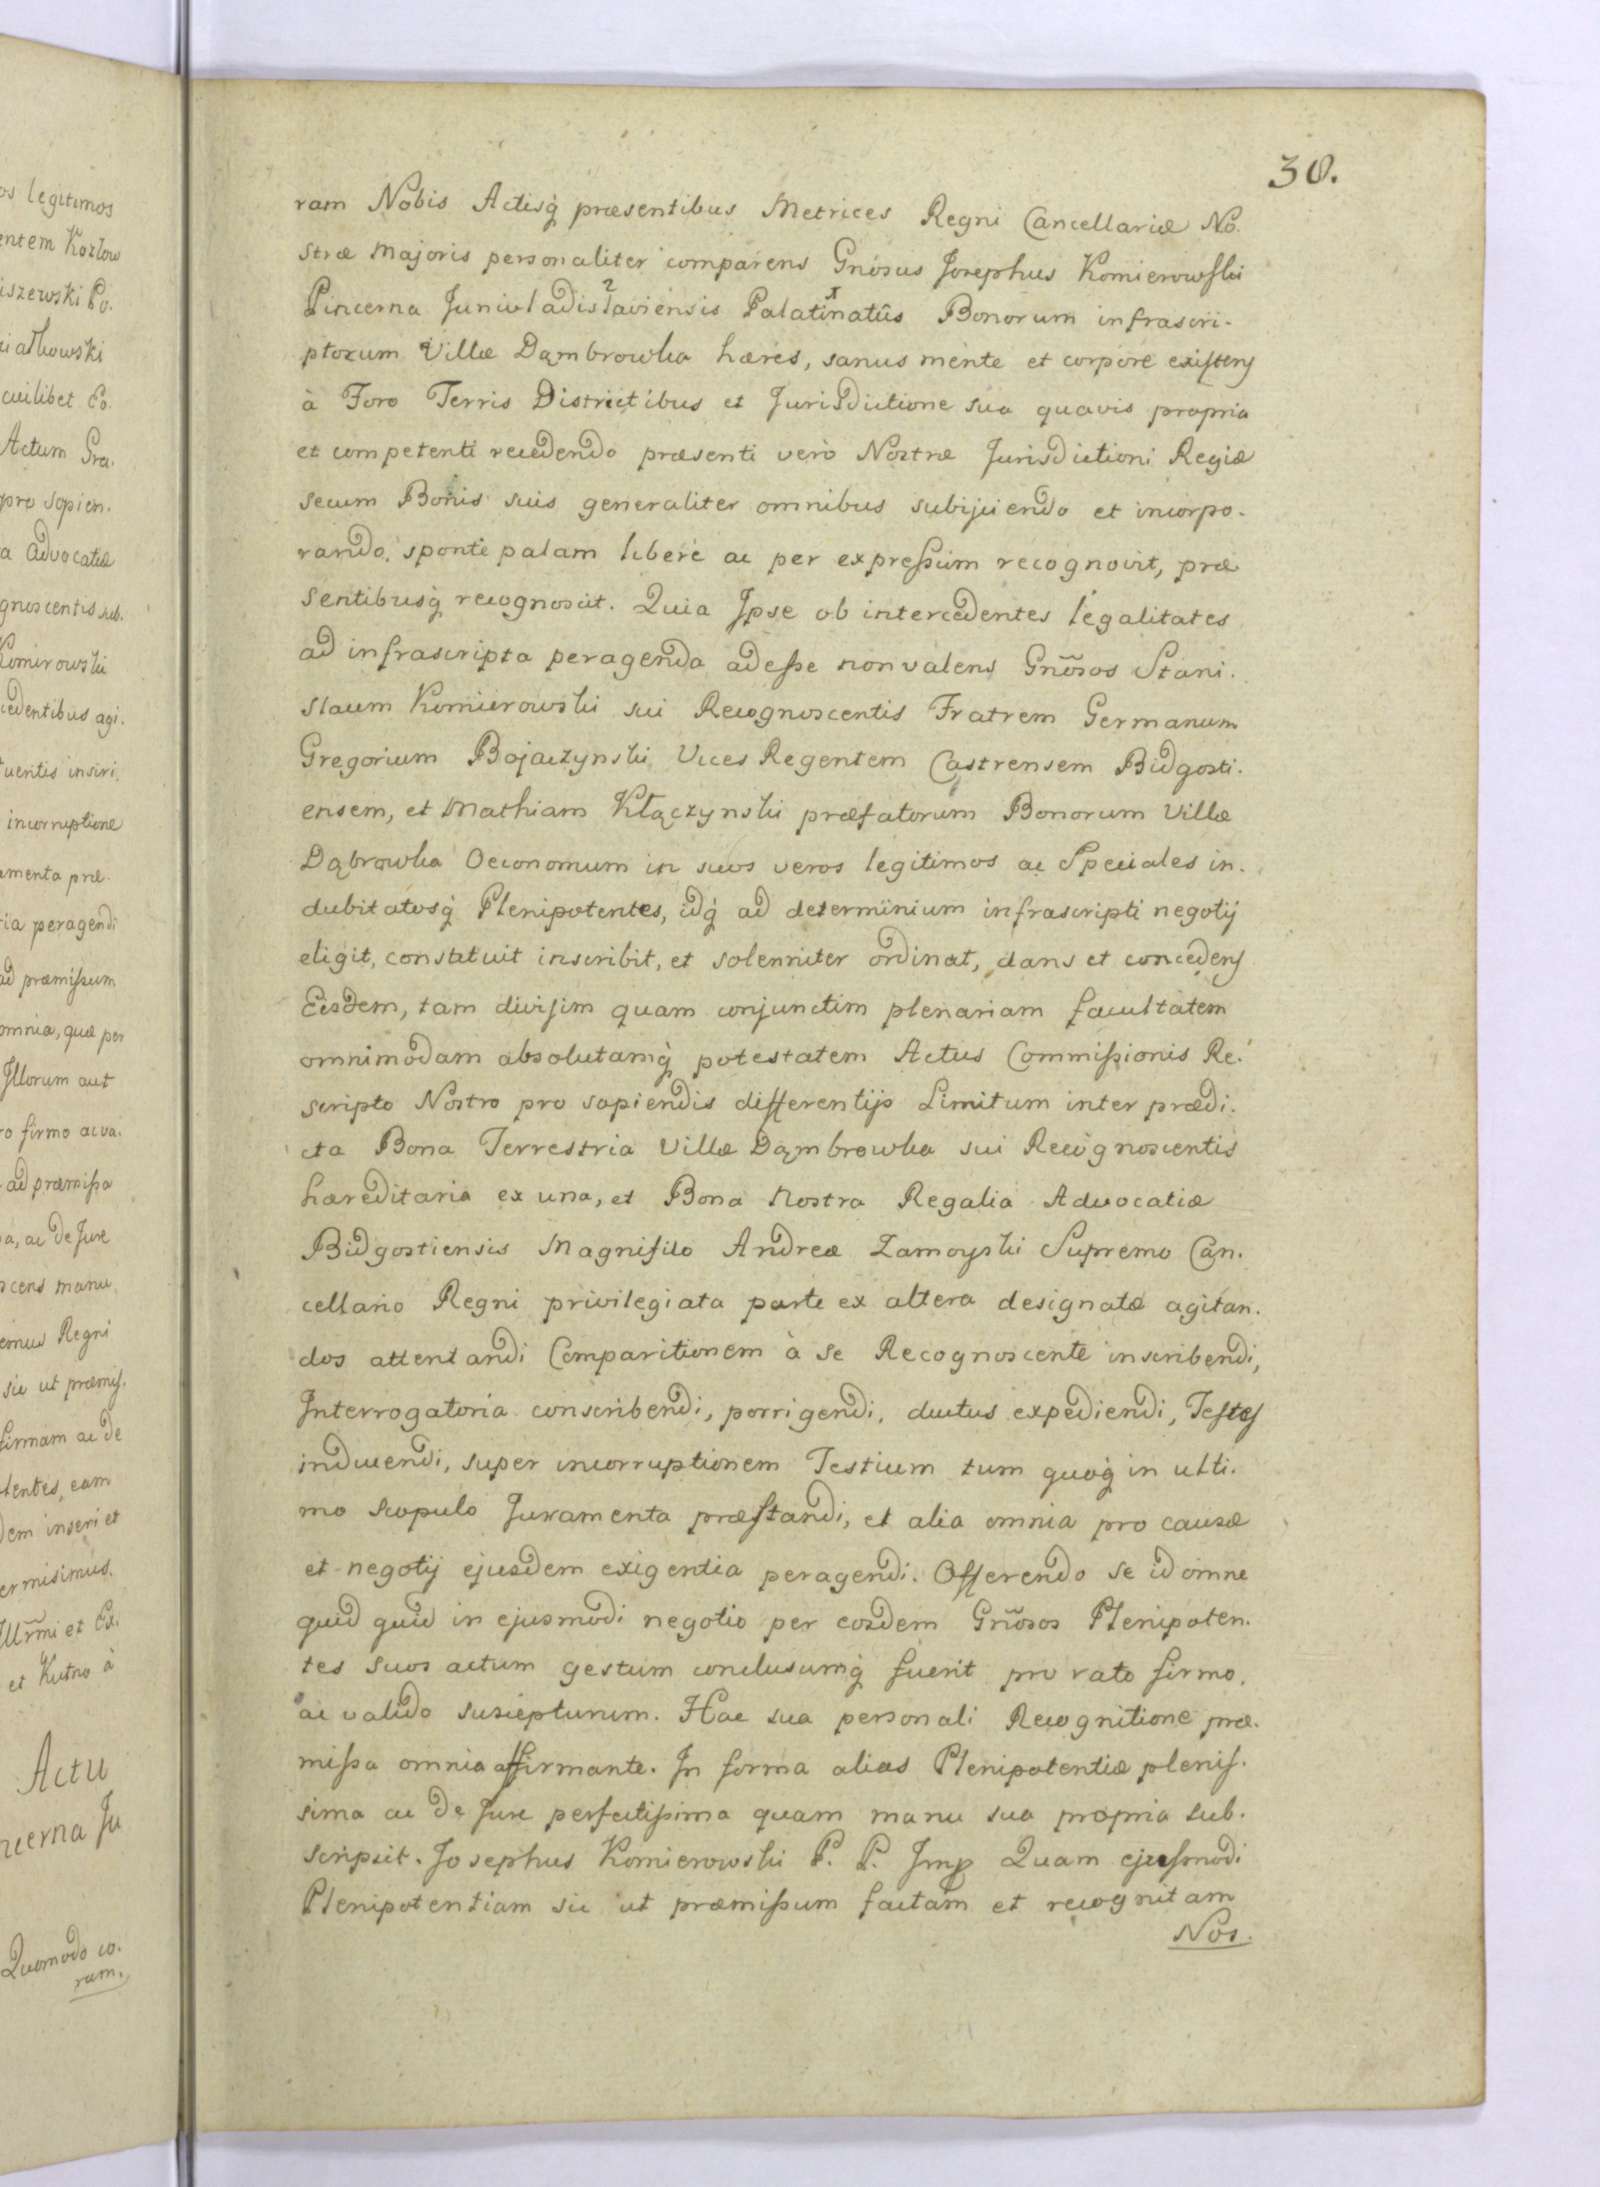 30.
ram Nobis Actisq́ præsentibus Metrices Regni Cancellariæ No.
stræ Majoris personaliter comparens Gnosus Josephus Komierowski
Pincerna Juniwladislaviensis Palatinatûs Bonorum infrascri.
ptorum Villæ Dąmbrowka hæres, sanus mente et corpore existens
à Foro Terris Districtibus et Jurisdictione sua quavis propria
et competenti recedendo præsenti verò Nostræ Jurisdictioni Regiæ
secum Bonis suis generaliter omnibus subijciendo et incorpo.
rando, sponte palam libere ac per expressum recognovit, præ
sentibusq́ recognoscit. Quia Ipse ob intercedentes legalitates
ad infrascripta peragenda adesse non valens Gnõsos Stani.
slaum Komierowski sui Recognoscentis Fratrem Germanum
Gregorium Bojaczynski Vices Regentem Castrensem Bidgosti.
ensem, et Mathiam Kłączynski præfatorum Bonorum Villæ
Dąbrowka Oeconomum in suos veros legitimos ac Speciales in.
dubitatosq́ Plenipotentes, idq́ ad determinium infrascripti negotij
eligit, constituit inscribit, et solenniter ordinat, dans et concedens
Eisdem, tam divisim quam conjunctim plenariam facultatem
omnimodam absolutamq́ potestatem Actus Commissionis Re.
scripto Nostro pro sopiendis differentijs Limitum inter prædi.
cta Bona Terrestria Villæ Dąmbrowka sui Recognoscentis
hæreditaria ex una, et Bona Nostra Regalia Advocatiæ
Bidgostiensis Magnifico Andreæ Zamoyski Supremo Can.
cellario Regni privilegiata parte ex altera designatæ agitan.
dos attentandi Comparitionem à se Recognoscente inscribendi,
Interrogatoria conscribendi, porrigendi, ductus expediendi, Testes
inducendi, super incorruptionem Testium tum quoq́ in ulti.
mo scopulo Juramenta præstandi, et alia omnia pro causæ
et negotij ejusdem exigentia peragendi. Offerendo se id omne
quid quid in ejusmodi negotio per eosdem Gnõsos Plenipoten.
tes suos actum gestum conclusumq́ fuerit pro rato firmo,
ac valido suscepturum. Hac sua personali Recognitione præ.
missa omnia affirmante. In forma alias Plenipotentiæ plenis.
sima ac de Jure perfectissima quam manu sua propria sub.
scripsit. Josephus Komierowski P. P. Imp Quam ejusmodi
Plenipotentiam sic ut præmissum factam et recognitam
Nos.
os legitimos
entem Kozłow
iszewski Po.
cuilibet Po.
Actum Gra.
pro sopien.
a Advocatiæ
gnoscentis sub.
Komirowski
cedentibus agi.
incorruptione
amenta præ.
ria peragendi
ad præmissum
omnia, quæ per
Illorum aut
ro firmo ac va.
ad præmissa
a, ac de Jure
scens manu
emus Regni
sic ut præmis.
firmam ac de
tentes, eam
dem inseri et
ermisimus.
Illrm̃i et Ex.
et Kutno à
Actu
ncerna Ju
Quomodo co.
ram.